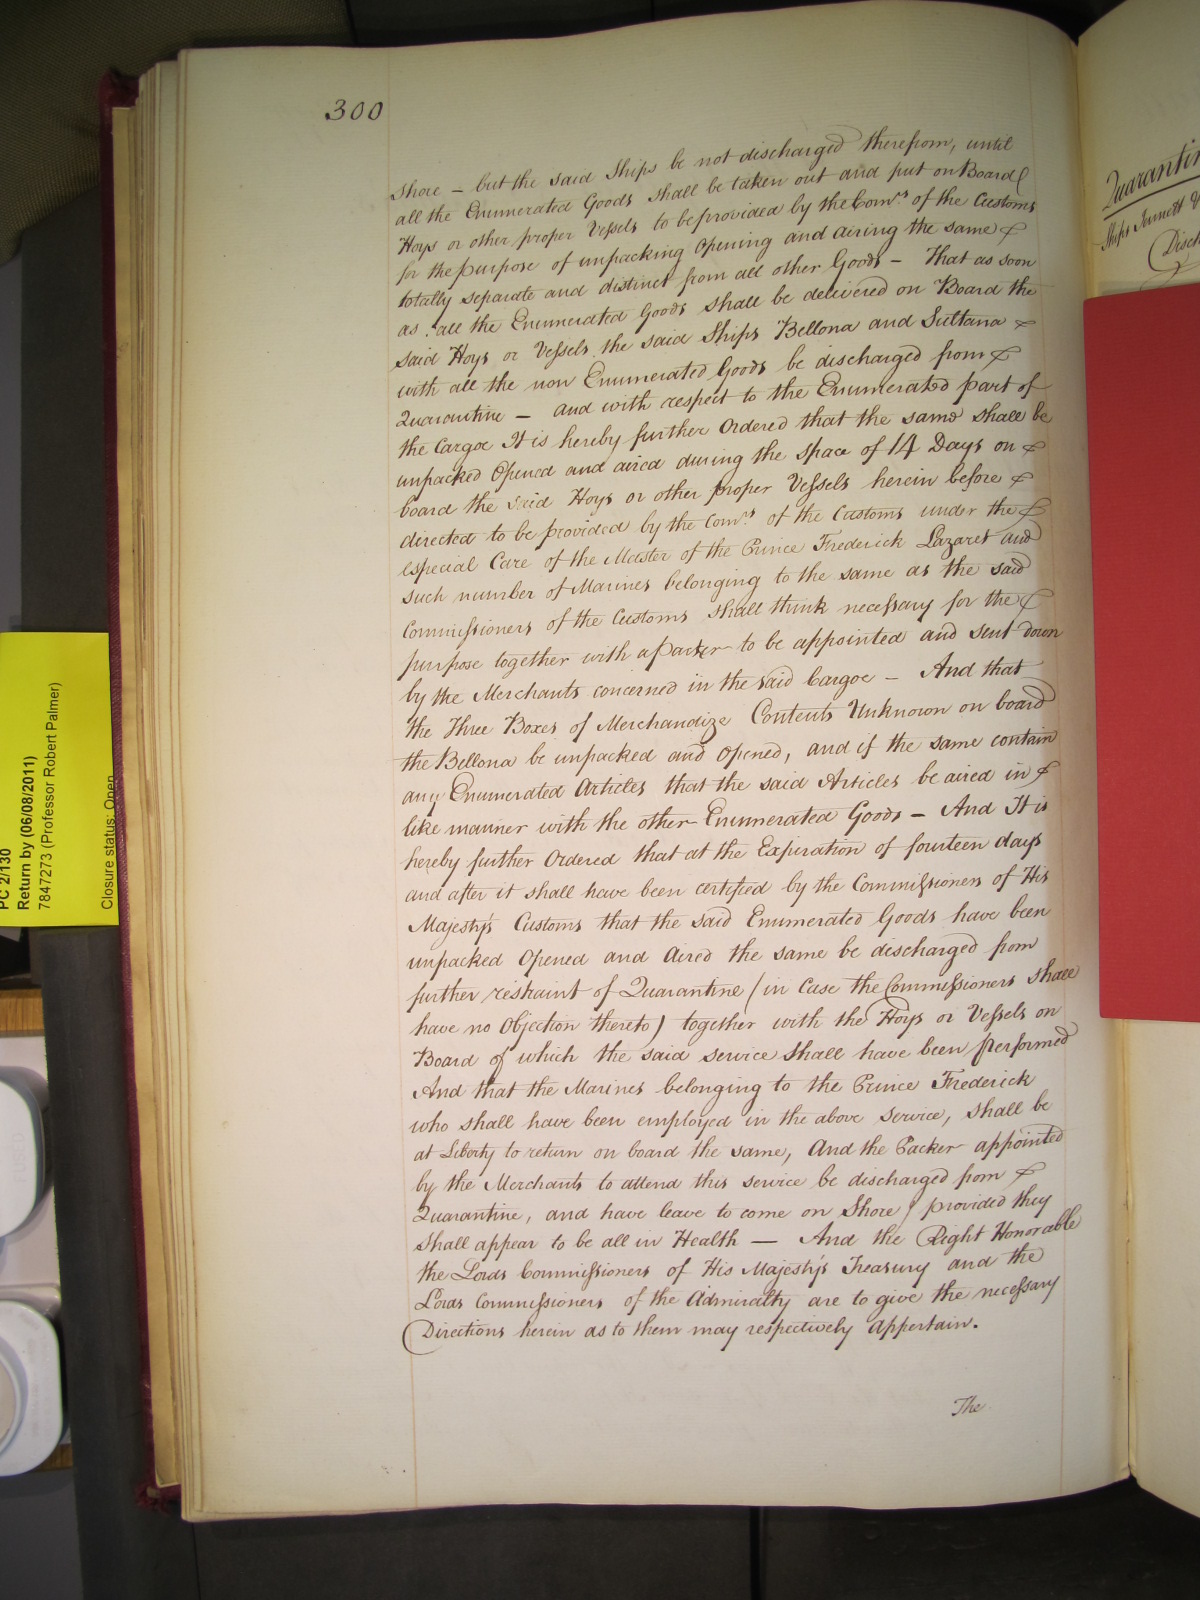 300
shore – but the said Ships be not discharged therefrom, until
all the Enumerated Goods shall be taken out and put on Board
Hoys or other proper Vessels to be provided by the Comrs of the Customs
for the purpose of unpacking Opening and airing the same
totally separate and distinct from all other Goods – That as soon
as all the Enumerated Goods shall be delivered on Board the
said Hoys or Vessels the said Ships Bellona and Sultana
with all the non Enumerated Goods be discharged from
Quarantine – and with respect to the Enumerated part of
the Cargoe It is hereby further Ordered that the same shall be
unpacked Opened and aired during the space of 14 Days on
board the said Hoys or other proper Vessels herein before
directed to be provided by the Comrs of the Customs under the
especial Care of the Master of the Prince Frederick Lazaret and
such number of Marines belonging to the same as the said
Commissioners of the Customs shall think necessary for the
purpose together with a Packer to be appointed and sent down
by the Merchants concerned in the said Cargoe – And that
the Three Boxes of Merchandize Contents Unknown on board
the Bellona be unpacked and opened, and if the same contain
any Enumerated Articles that the said Articles be aired in
like manner with the other Enumerated Goods – And It is
hereby further Ordered that at the Expiration of fourteen days
and after it shall have been certified by the Commissioners of His
Majesty's Customs that the said Enumerated Goods have been
unpacked Opened and Aired the same be discharged from
further restraint of Quarantine (in Case the Commissioners shall
have no Objection thereto) together with the Hoys or Vessels on
Board of which the said service shall have been performed
And that the Marines belonging to the Prince Frederick
who shall have been employed in the above Service, shall be
at Liberty to return on board the same, And the Packer appointed
by the Merchants to attend this service be discharged from
Quarantine, and have leave to come on Shore, provided they
shall appear to be all in Health — And the Right Honorable
the Lords Commissioners of His Majesty's Treasury and the
Lords Commissioners of the Admiralty are to give the necessary
Directions herein as to them may respectively appertain.
The
Quarantin
Ships
Disch
PC 2/130
Return by (06/08/2011)
7847273 (Professor Robert Palmer)
Closure status: Open